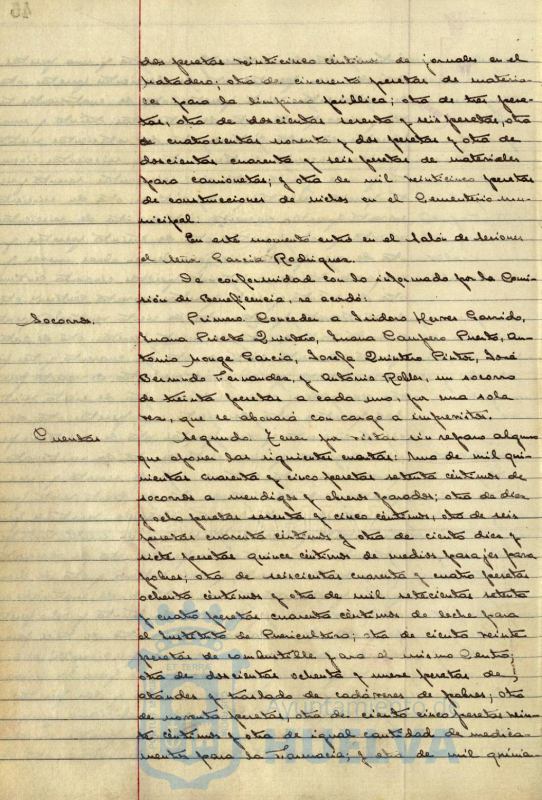 dos pesetas veinticinco céntimos de jornales en el
matadero; otra de cincuenta pesetas de materia-
les para la limpieza pública; otra de tres pese-
tas, otra de doscientas sesenta y seis pesetas, otra
de cuatrocientas noventa y dos pesetas y otra de
doscientas cuarenta y seis pesetas de materiales
para camionetas; y otra de mil veinticinco pesetas
de construcciones de nichos en el Cementerio mu-
nicipal.
En este momento entra en el salón de sesiones
el señor García Rodríguez.
De conformidad con lo informado por la Comi-
sión de Beneficencia, se acordó:
Socorros. Primero. Conceder a Isidoro Garrido,
Juana Prieto Quintero, Juana Campero Prieto, An-
tonio Monge García, Josefa Quintero Pinto, José
Bermudo Fernandez, y Antonio Robles, un socorro
de treinta pesetas a cada uno, por una sola
vez, que se abonará con cargo a imprevistos.
Cuentas Segundo. Tener por vistas sin reparo alguno
que oponer las siguientes cuentas: Una de mil qui-
nientas cuarenta y cinco pesetas setenta céntimos de
socorros a mendigos y obreros parados; otra de diez
y ocho pesetas sesenta y cinco céntimos, otra de seis
pesetas cuarenta céntimos y otra de ciento diez y
siete pesetas quince céntimos de medios pasajes para
pobres; otra de seiscientas cuarenta y cuatro pesetas
ochenta céntimos y otra de mil setecientas setenta
y cuatro pesetas cuarenta céntimos de leche para
el Instituto de Puericultura; otra de ciento veinte
pesetas de combustible para el mismo Centro;
otra de doscientas ochenta y nueve pesetas de
ataudes y traslado de cadáveres de pobres; otra
de noventa pesetas, otra de ciento cinco pesetas vein-
te céntimos y otra de igual cantidad de medica-
mentos para la Farmacia; y otra de mil quinien-
Ayuntamiento de
HUELVA